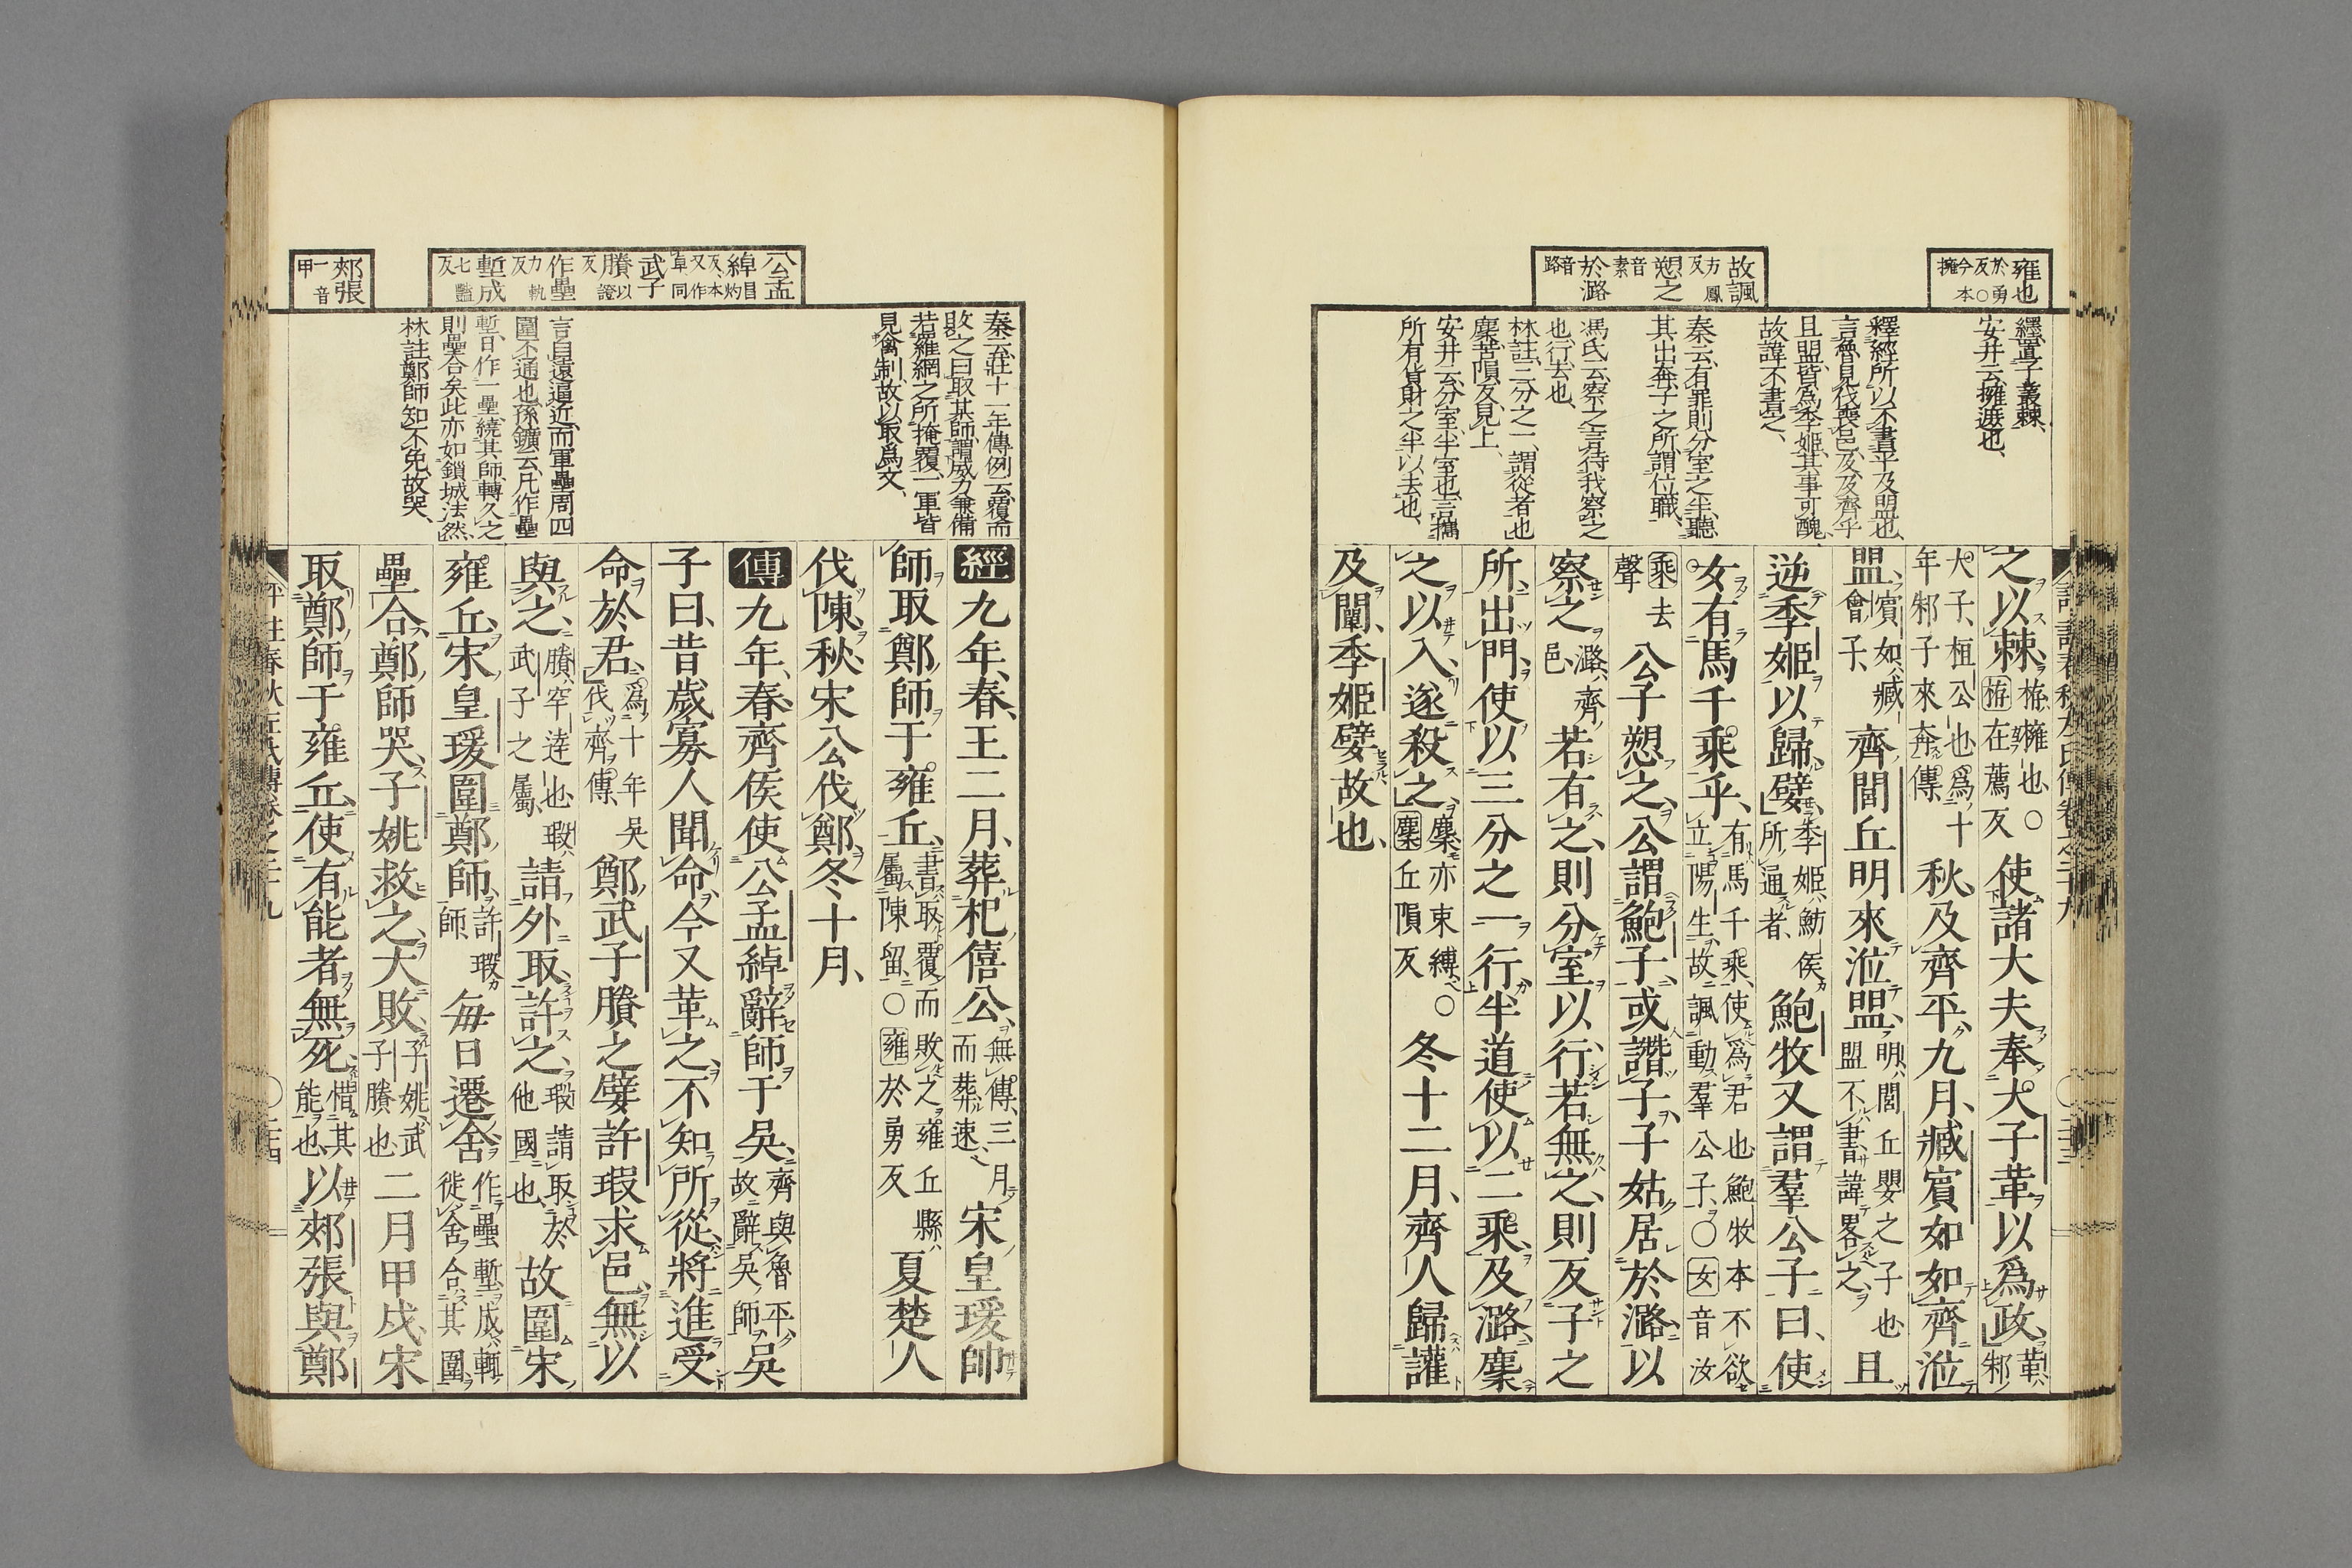 雍也 於勇反今本擁
故諷 方鳳反
愬之 音素
於潞 音路
繹置子叢棘
安井云擁遮也
釋經所以不書平及盟也
言魯見伐喪邑及及齊平
且盟皆爲季姬其事可醜
故諱不書之
秦云有罪則分室之半聽
其出奔子之所謂位職
馮氏云察之言待我察之
也行去也
林註三分之一謂從者也
麇苦隕反見上
安井云分室半室也言攜
所有貨財之半以去也
之以棘 栫擁也○栫在薦反 使諸大夫奉大子革以爲政 革邾
大子桓公也爲十年邾子來奔傳 秋及齊平九月臧賓如如齊涖
盟 賓如臧會子 齊閭丘明來涖盟 明閭丘嬰之子也盟不書諱畧之 且
逆季姬以歸嬖 季姬魴侯所通者 鮑牧又謂羣公子曰使
女有馬千乘乎 有馬千乘使爲君也鮑牧本不欲立陽生故諷動羣公子○女音汝
乘去聲 公子愬之公謂鮑子或譖子子姑居於潞以
察之 潞齊邑 若有之則分室以行若無之則反子之
所出門使以三分之一行半道使以二乘及潞麇
之以入遂殺之 麇亦束縛○麇丘隕反 冬十二月齊人歸讙
及闡季姬嬖故也
公孟
綽 目灼反又本作卓同
武子
賸 以證反
作壘 力軌反
塹成 七豔反
郟張 一音甲
秦云莊十一年傳例云覆而
敗之曰取某師謂威力兼備
若羅網之所掩覆一軍皆
見禽制故以取爲文
言自遠逼近而軍壘周四
圍不通也孫鑛云凡作壘
塹日作一壘繞其師轉久之
則壘合矣此亦如鎖城法然
林註鄭師知不免故哭
經九年春王二月葬杞僖公 無傳三月而葬速 宋皇瑗帥
師取鄭師于雍丘 書取覆而敗之雍丘縣屬陳留○雍於勇反 夏楚人
伐陳秋宋公伐鄭冬十月
傳九年春齊侯使公孟綽辭師于吳 齊與魯平故辭吳師 吳
子曰昔歲寡人聞命今又革之不知所從將進受
命於君 爲十年吳伐齊傳 鄭武子賸之嬖許瑕求邑無以
與之 賸罕達也武子之屬 瑕請外取許之 瑕請取於他國也 故圍宋
雍丘宋皇瑗圍鄭師 許瑕師 每日遷舍 作壘塹成輒徙舍合其圍
壘合鄭師哭子姚救之大敗 子姚武子賸也 二月甲戌宋
取鄭師于雍丘使有能者無死 惜其能也 以郟張與鄭